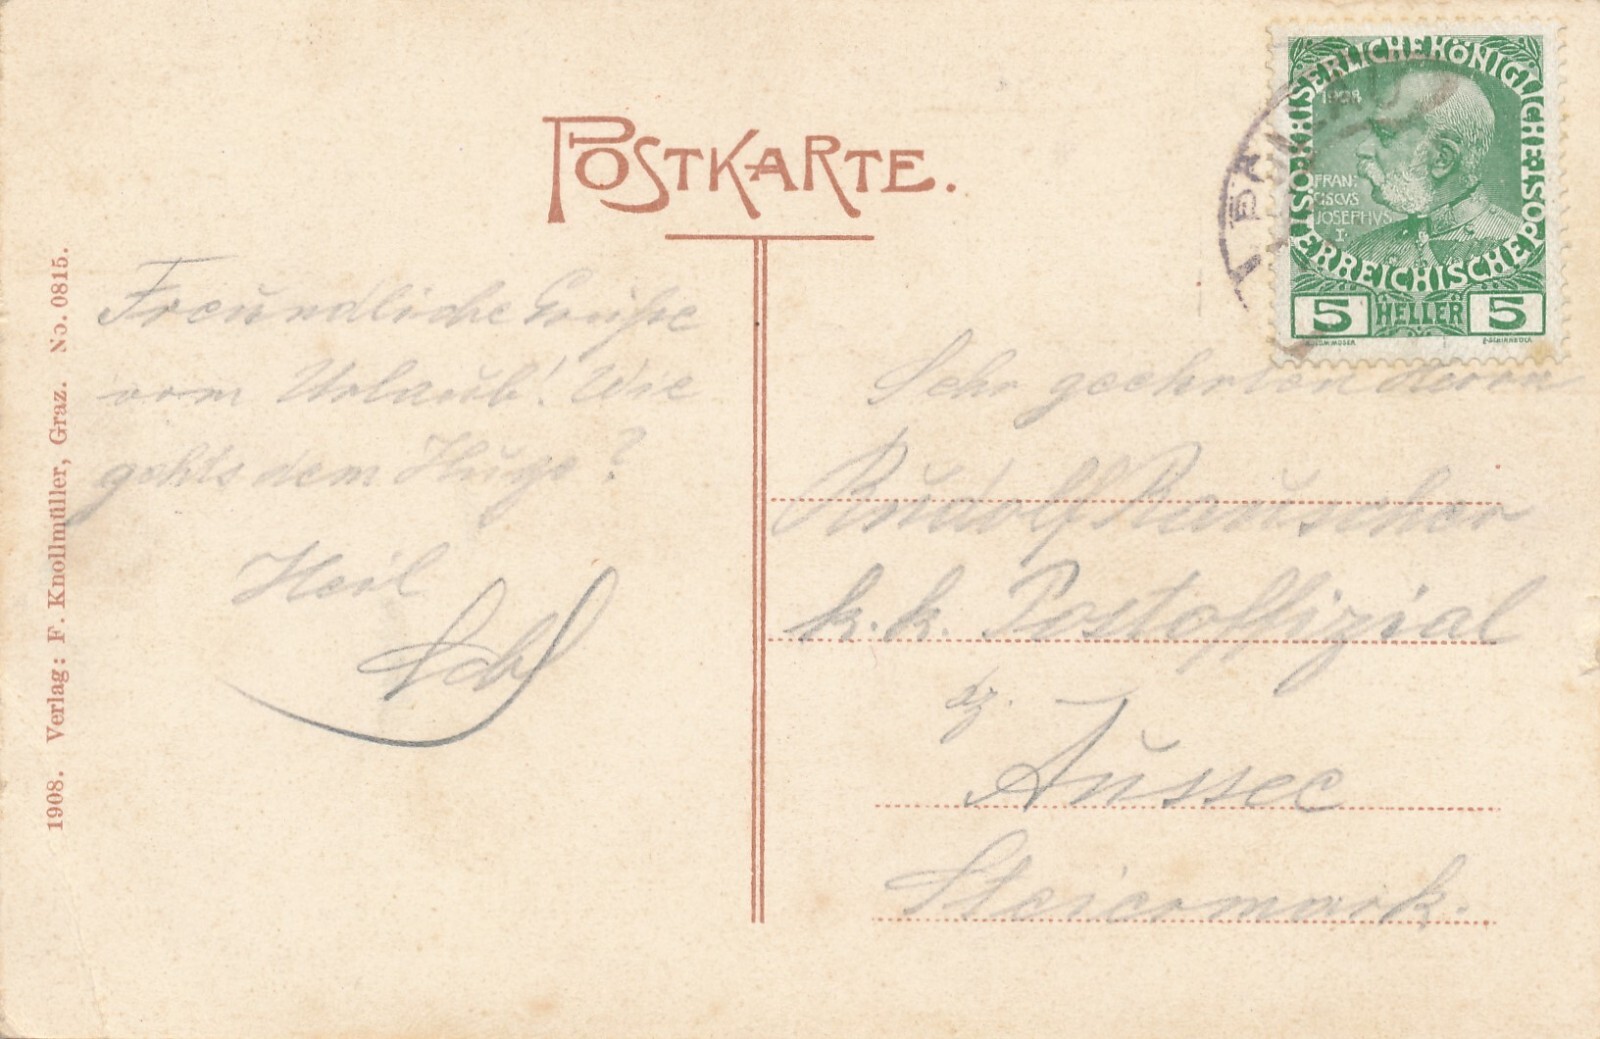 POSTKARTE.
KAISERLICHE KÖNIGLICHE ÖSTERREICHISCHE POST
1908
FRAN:
CISCVS
JOSEPHVS
I.
5 HELLER 5
Freundliche Grüße
vom Urlaub! Wie
gehts dem Hugo?
Heil
Sehr geehrten Herrn
Rudolf Rauscher
k.k. Postoffizial
in
Aussee
Steiermark.
1908. Verlag: F. Knollmüller, Graz. No. 0815.